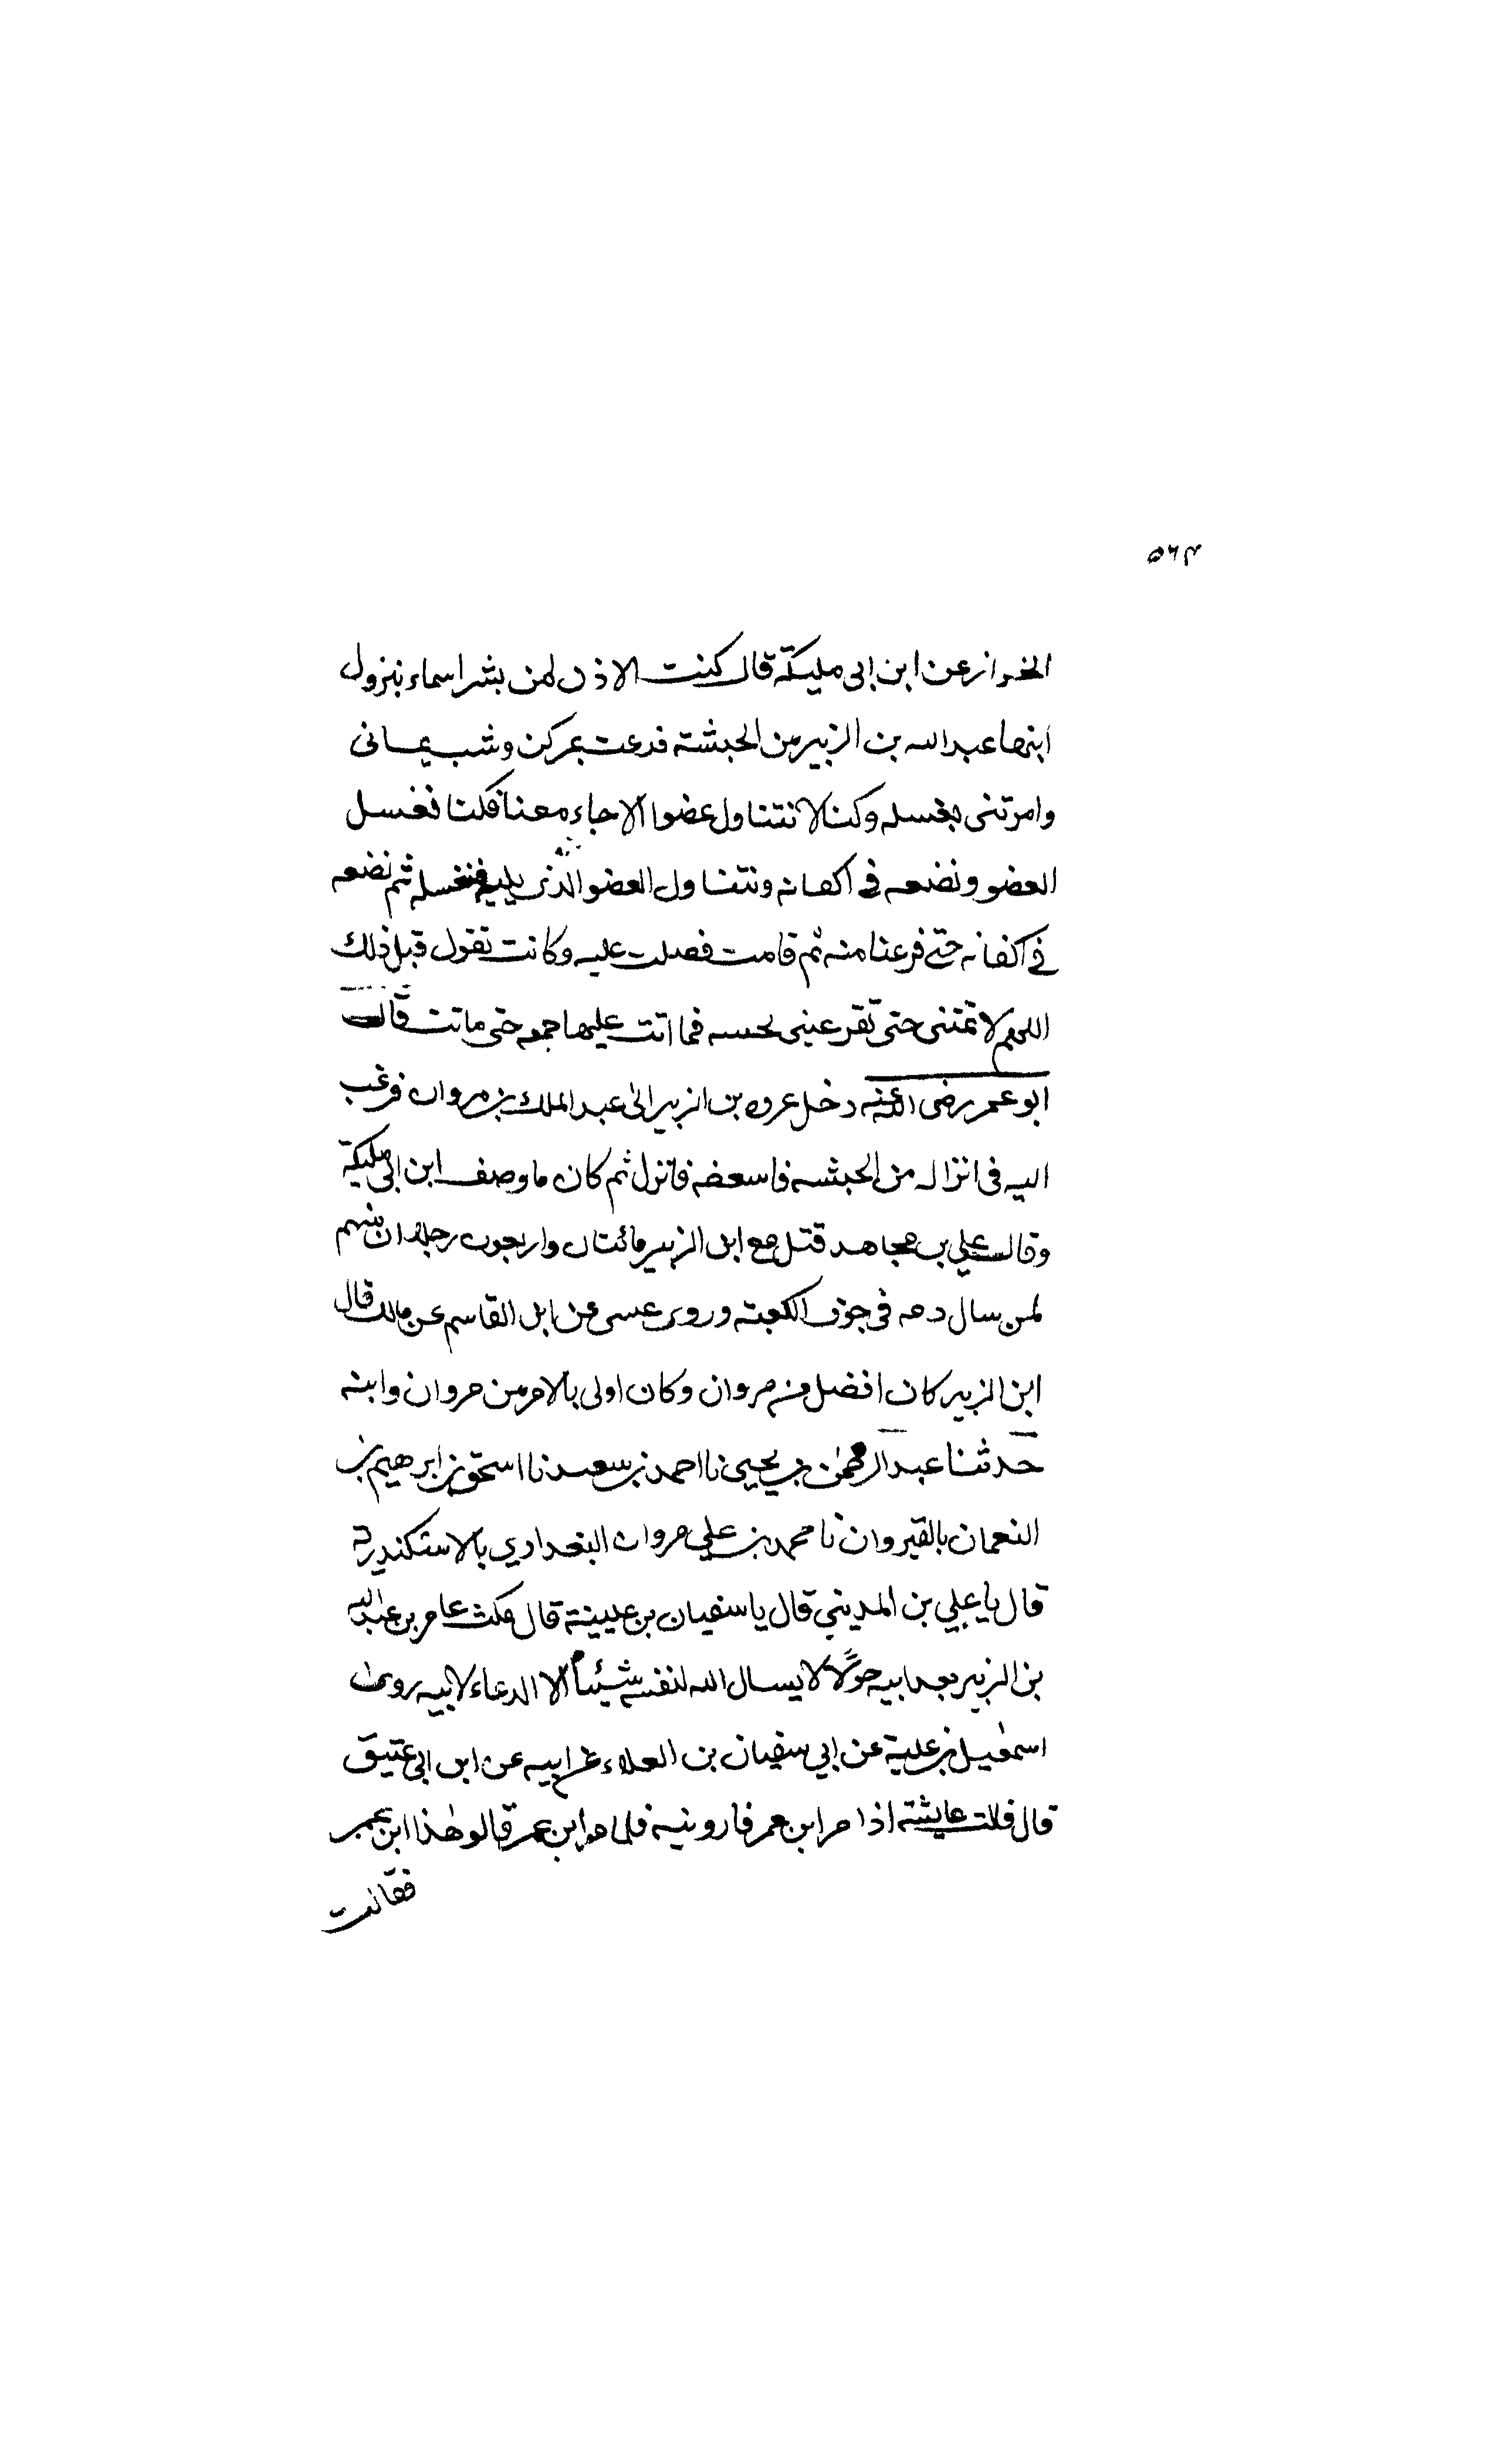 ٤٦٥
الخراز عن ابن ابي مليكة قال كنت الاذن لمن بشر اسماء بنزول
ابنها عبد الله بن الزبير من الخبشة فدعت بمركن وشب يمانى
وامرتنى بغسله وكنا لا نتناول عضوا الا جاء معنا فكنا نغسل
العضو ونضعه فى اكفانه ونتناول العضو الذى يليه فنغسله ثم نضعه
فى اكفانه حتى فرغنا منه ثم قامت فصلت عليه وكانت تقول قبل ذلك
اللهم لا تمتنى حتى تقر عينى بجسه فما اتت عليها جمعه حتى ماتت قال
ابو عمر رضى الله عنه دخل عروه بن الزبير الى عبد الملك بن مروان فرغب
اليه فى انزاله من الخبشه فاسعفه فانزل ثم كان ما وصف ابن ابى مليكة
وقال على بن مجاهد قتل مع ابن الزبير مائتان واربعون رجلا ان منهم
لمن سال دمه فى جوف الكعبة وروى عيسى عن ابن القاسم عن مالك قال
ابن الزبير كان افضل من مروان وكان اولى بالامر من مروان وابنه
حدثنا عبد الرحمن بن يحيى نا احمد بن سعيد نا اسحق بن ابرهيم بن
النعمان بالقيروان نا محمد بن على مروان البغدادي بالاسكندرية
قال يا علي بن المديني قال يا سفيان بن عيينة قال مكث عامر بن عبد الله
بن الزبير بعد ابيه حولًا لا يسال الله لنفسه شيئا الا الدعاء لابيه روى
اسمعيل بن علية عن ابي سفيان بن العلاء عن ابيه عن ابن ابى عتيق
قال قلت عايشة اذا مر ابن عمر فارونيه فلما مر ابن عمر قالو هذا ابن عمر
فقالت